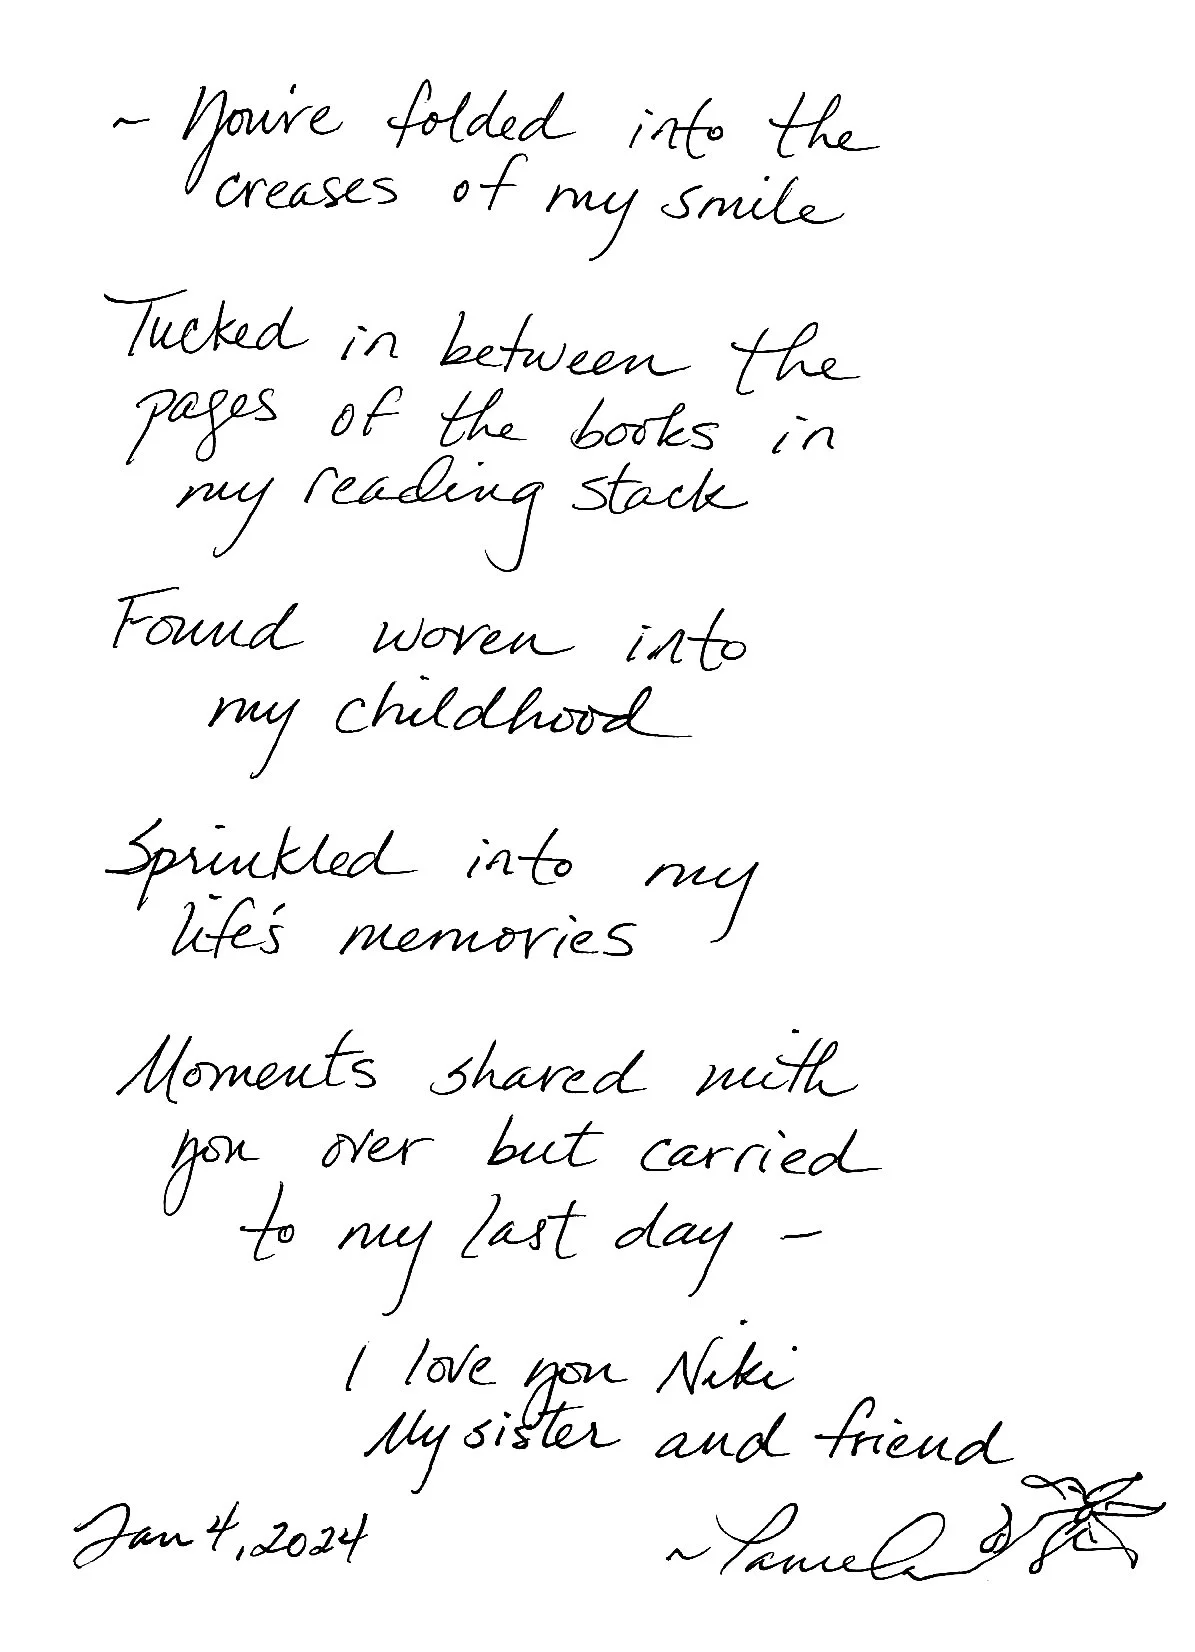 ~ You're folded into the
creases of my smile
Tucked in between the
pages of the books in
my reading stack
Found woven into
my childhood
Sprinkled into my
life's memories
Moments shared with
you over but carried
to my last day –
I love you Niki
My sister and friend
Jan 4, 2024
~ Pamela